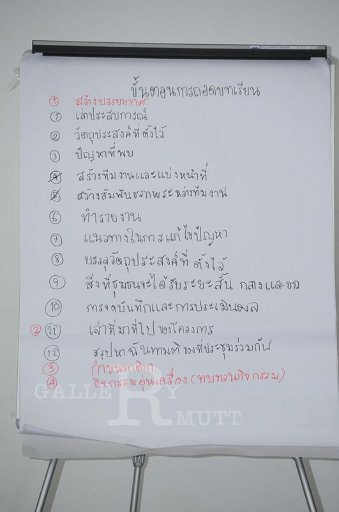 ขั้นตอนการถอดบทเรียน
① สร้างบรรยากาศ
① เล่าประสบการณ์
② วัตถุประสงค์ที่ตั้งไว้
③ ปัญหาที่พบ
④ สร้างทีมงานและแบ่งหน้าที่
⑤ สร้างสัมพันธภาพระหว่างทีมงาน
⑥ ทำรายงาน
⑦ แนวทางในการแก้ไขปัญหา
⑧ บรรลุวัตถุประสงค์ที่ตั้งไว้
⑨ สิ่งที่ชุมชนจะได้รับระยะสั้น กลางและยาว
⑩ การจดบันทึกและการประเมินผล
② ⑪ เล่าที่มาที่ไปของโครงการ
⑫ สรุปหาฉันทามติของที่ประชุมร่วมกัน
③ กำหนดกติกา
④ กิจกรรมอุ่นเครื่อง (ทบทวนกิจกรรม)
GALLERY
RMUTT